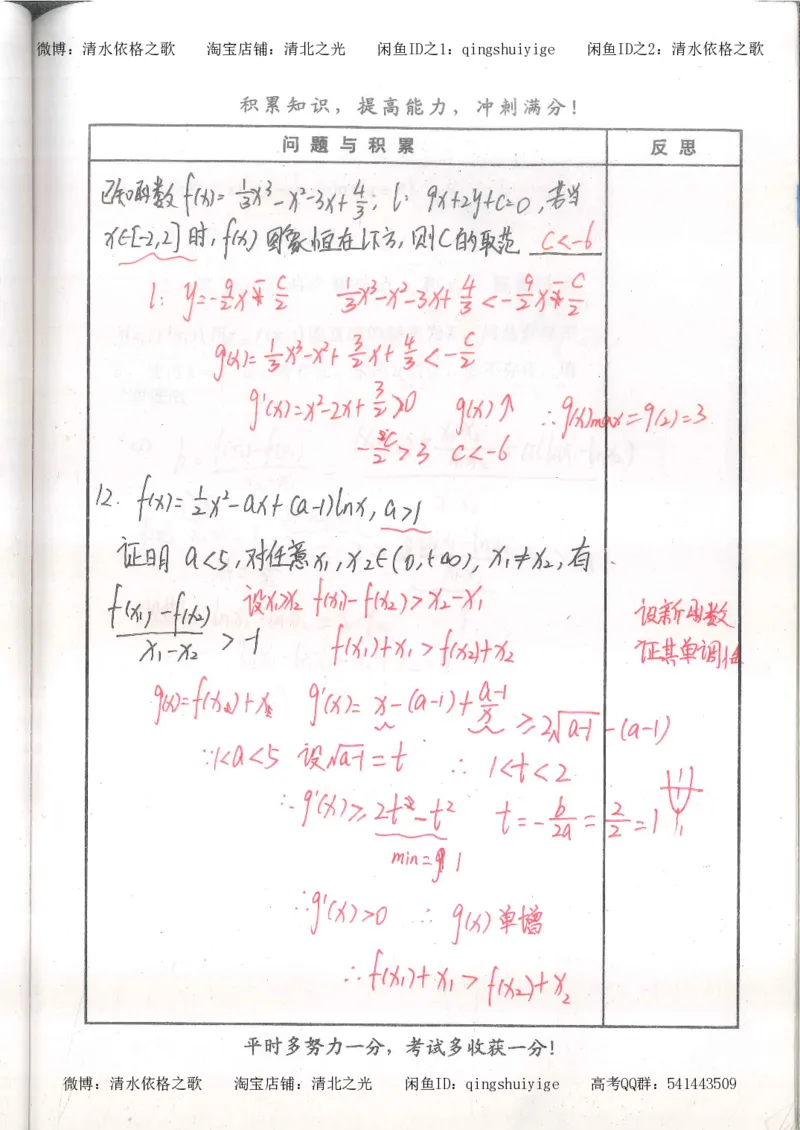 微博：清水依格之歌 淘宝店铺：清北之光 闲鱼ID之1：qingshuiyige 闲鱼ID之2：清水依格之歌
积累知识，提高能力，冲刺满分！
问题与积累 反思
已知函数f(x)=1/3x³-x²-3x+4/3, l: 9x+2y+c=0,若当
x∈[-2,2]时,f(x)图象恒在l下方,则C的取范 c<-6
l: y=-9/2x-c/2 1/3x³-x²-3x+4/3<-9/2x-c/2
g(x)=1/3x³-x²+3/2x+4/3<-c/2
g'(x)=x²-2x+3/2>0 g(x)↑ ∴g(x)max=g(2)=3
-c/2>3 c<-6
12. f(x)=1/2x²-ax+(a-1)lnx, a>1
证明 a<5,对任意x₁,x₂∈(0,+∞), x₁≠x₂,有
(f(x₁)-f(x₂))/(x₁-x₂)>-1
设x₁>x₂ f(x₁)-f(x₂)>x₂-x₁
f(x₁)+x₁>f(x₂)+x₂
设新函数
证其单调性
g(x)=f(x)+x g'(x)=x-(a-1)+(a-1)/x ≥2√(a-1)-(a-1)
∵1<a<5 设√(a-1)=t ∴1<t<2
∴g'(x)≥2t-t² t=-b/2a=2/2=1
min=1
∴g'(x)>0 ∴g(x)单增
∴f(x₁)+x₁>f(x₂)+x₂
平时多努力一分，考试多收获一分！
微博：清水依格之歌 淘宝店铺：清北之光 闲鱼ID：qingshuiyige 高考QQ群：541443509